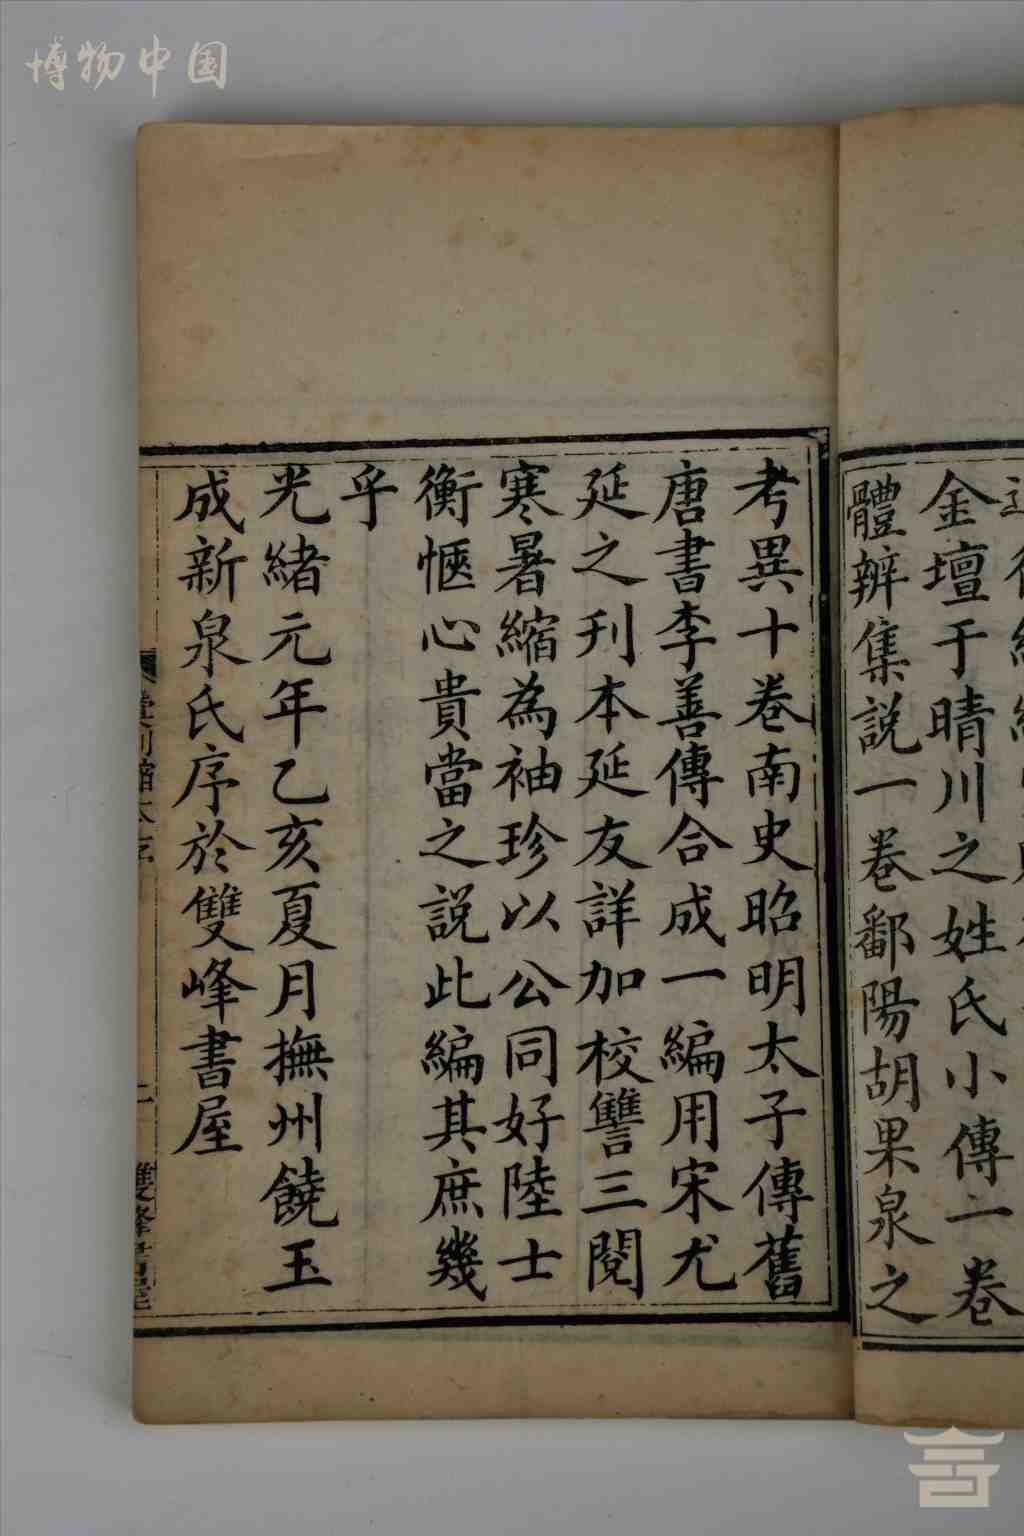 博物中国
金壇于晴川之姓氏小傳一卷
體辨集説一卷鄱陽胡果泉之
考異十卷南史昭明太子傳舊
唐書李善傳合成一編用宋尤
延之刋本延友詳加校讐三閱
寒暑縮為袖珍以公同好陸士
衡愜心貴當之説此編其庶幾
乎
光緒元年乙亥夏月撫州饒玉
成新泉氏序於雙峰書屋
二